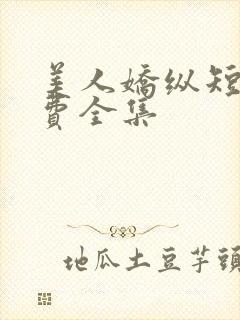 美人娇纵短
费全集
地瓜土豆芋頭